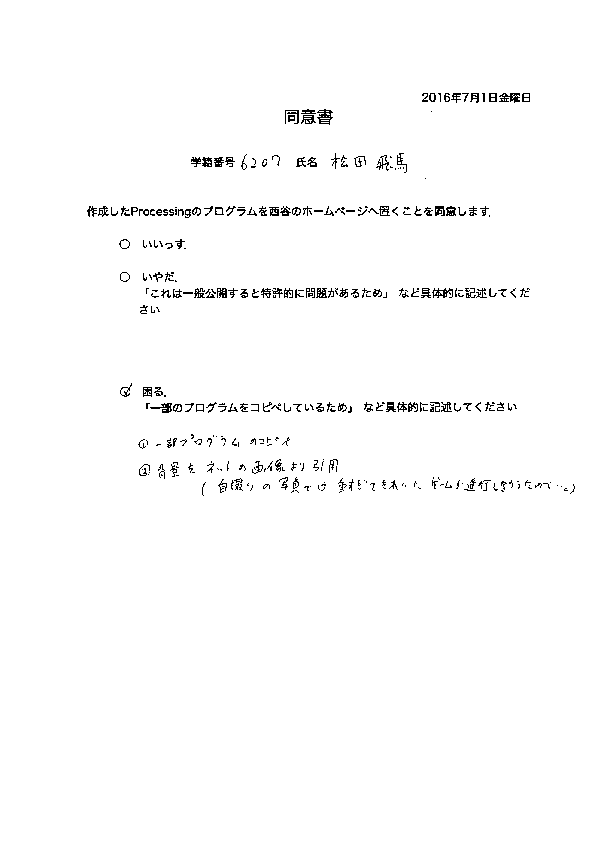 2016年7月1日金曜日
同意書
学籍番号 6207 氏名 松田 飛馬
作成したProcessingのプログラムを西谷のホームページへ置くことを同意します.
○ いいっす.
○ いやだ.
「これは一般公開すると特許的に問題があるため」 など具体的に記述してくだ
さい
○ 困る.
「一部のプログラムをコピペしているため」 など具体的に記述してください
① 一部プログラムのコピペ
② 背景をネットの画像より引用
( 自撮りの写真では 重すぎて